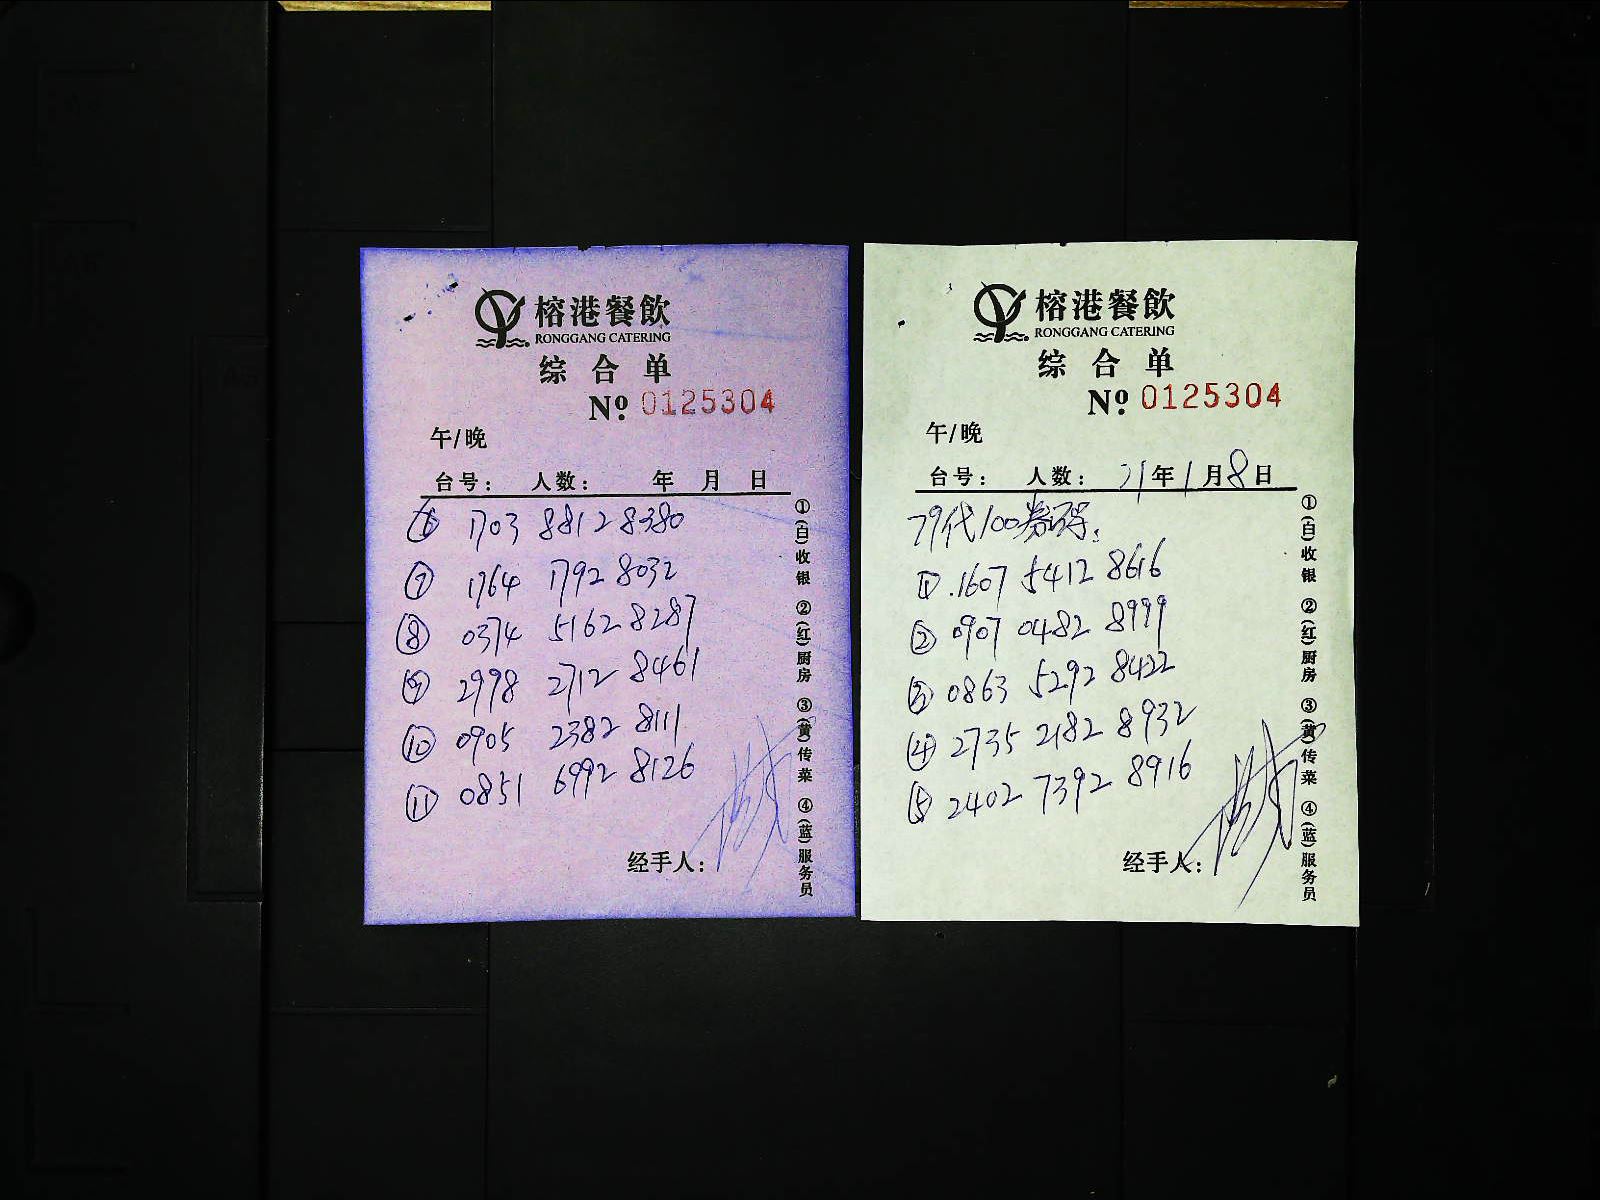 榕港餐飲
RONGGANG CATERING
综合单
Nº 0125304
午/晚
台号： 人数： 年 月 日
⑥ 1703 8812 8380
⑦ 1764 1792 8032
⑧ 0374 5162 8287
⑨ 2998 2712 8461
⑩ 0905 2382 8111
⑪ 0851 6992 8126
经手人：
①(白)收银 ②(红)厨房 ③(黄)传菜 ④(蓝)服务员
榕港餐飲
RONGGANG CATERING
综合单
Nº 0125304
午/晚
台号： 人数： 21年1月8日
79代100券码：
① 1607 5412 8616
② 0907 0482 8999
③ 0863 5292 8422
④ 2735 2182 8932
⑤ 2402 7392 8916
经手人：
①(白)收银 ②(红)厨房 ③(黄)传菜 ④(蓝)服务员